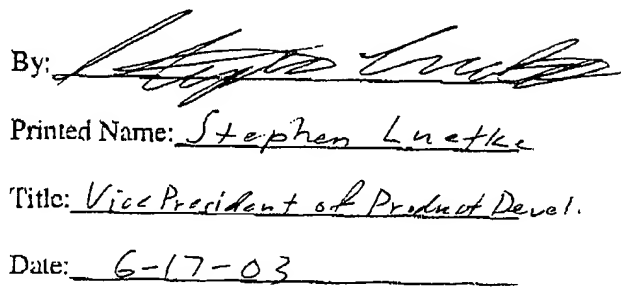 By:
Printed Name: Stephen Luetke
Title: Vice President of Product Devel.
Date: 6-17-03